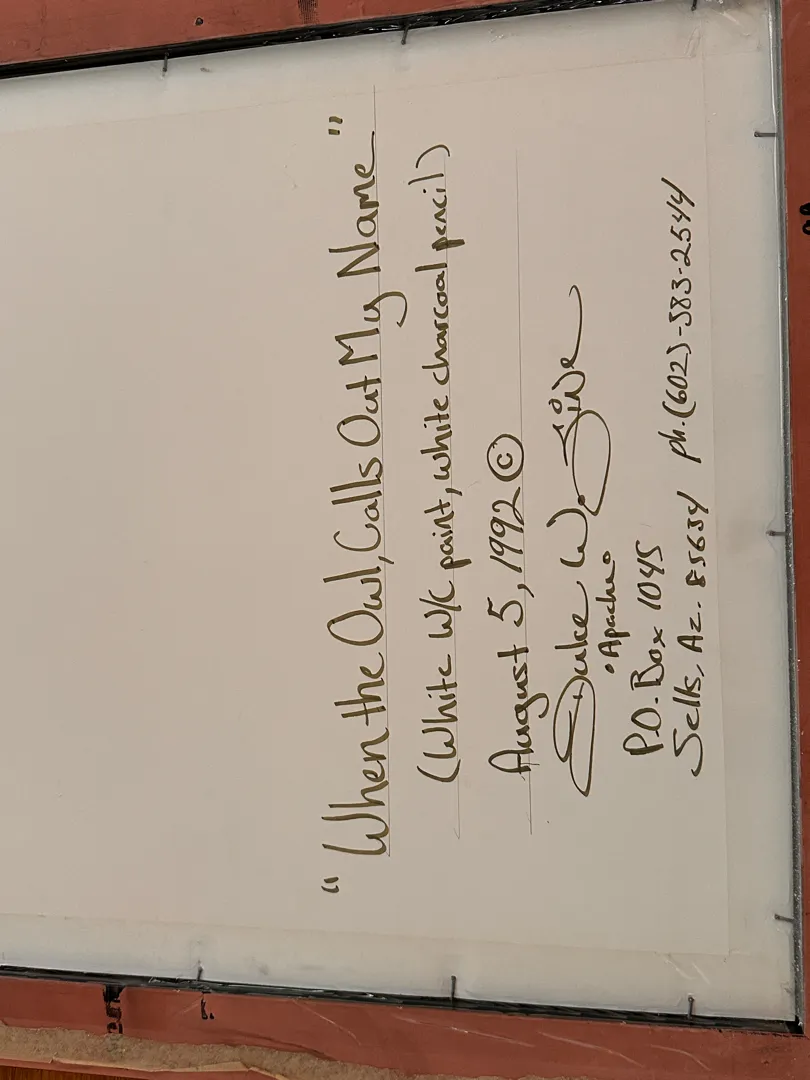 "When the Owl, Calls Out My Name"
(White W/C paint, white charcoal pencil)
August 5, 1992 ©
Duke W. Sine
•Apache•
P.O. Box 1045
Sells, Az. 85634 ph. (602)-383-2544